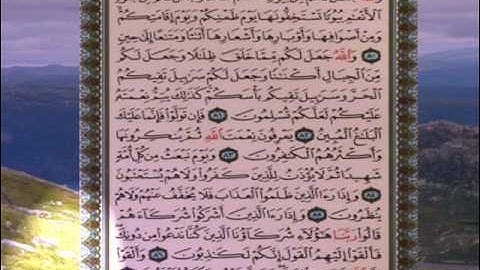 ٱلْأَنْعَٰمِ بُيُوتًا تَسْتَخِفُّونَهَا يَوْمَ ظَعْنِكُمْ وَيَوْمَ إِقَامَتِكُمْ
وَمِنْ أَصْوَافِهَا وَأَوْبَارِهَا وَأَشْعَارِهَآ أَثَٰثًا وَمَتَٰعًا إِلَىٰ حِينٍ
٨٠ وَٱللَّهُ جَعَلَ لَكُم مِّمَّا خَلَقَ ظِلَٰلًا وَجَعَلَ لَكُم
مِّنَ ٱلْجِبَالِ أَكْنَٰنًا وَجَعَلَ لَكُمْ سَرَٰبِيلَ تَقِيكُمُ
ٱلْحَرَّ وَسَرَٰبِيلَ تَقِيكُم بَأْسَكُمْ كَذَٰلِكَ يُتِمُّ نِعْمَتَهُۥ
عَلَيْكُمْ لَعَلَّكُمْ تُسْلِمُونَ ٨١ فَإِن تَوَلَّوْا۟ فَإِنَّمَا عَلَيْكَ
ٱلْبَلَٰغُ ٱلْمُبِينُ ٨٢ يَعْرِفُونَ نِعْمَتَ ٱللَّهِ ثُمَّ يُنكِرُونَهَا
وَأَكْثَرُهُمُ ٱلْكَٰفِرُونَ ٨٣ وَيَوْمَ نَبْعَثُ مِن كُلِّ أُمَّةٍ
شَهِيدًا ثُمَّ لَا يُؤْذَنُ لِلَّذِينَ كَفَرُوا۟ وَلَا هُمْ يُسْتَعْتَبُونَ
٨٤ وَإِذَا رَءَا ٱلَّذِينَ ظَلَمُوا۟ ٱلْعَذَابَ فَلَا يُخَفَّفُ عَنْهُمْ وَلَا هُمْ
يُنظَرُونَ ٨٥ وَإِذَا رَءَا ٱلَّذِينَ أَشْرَكُوا۟ شُرَكَآءَهُمْ
قَالُوا۟ رَبَّنَا هَٰٓؤُلَآءِ شُرَكَآؤُنَا ٱلَّذِينَ كُنَّا نَدْعُوا۟ مِن دُونِكَ
فَأَلْقَوْا۟ إِلَيْهِمُ ٱلْقَوْلَ إِنَّكُمْ لَكَٰذِبُونَ ٨٦ وَأَلْقَوْا۟